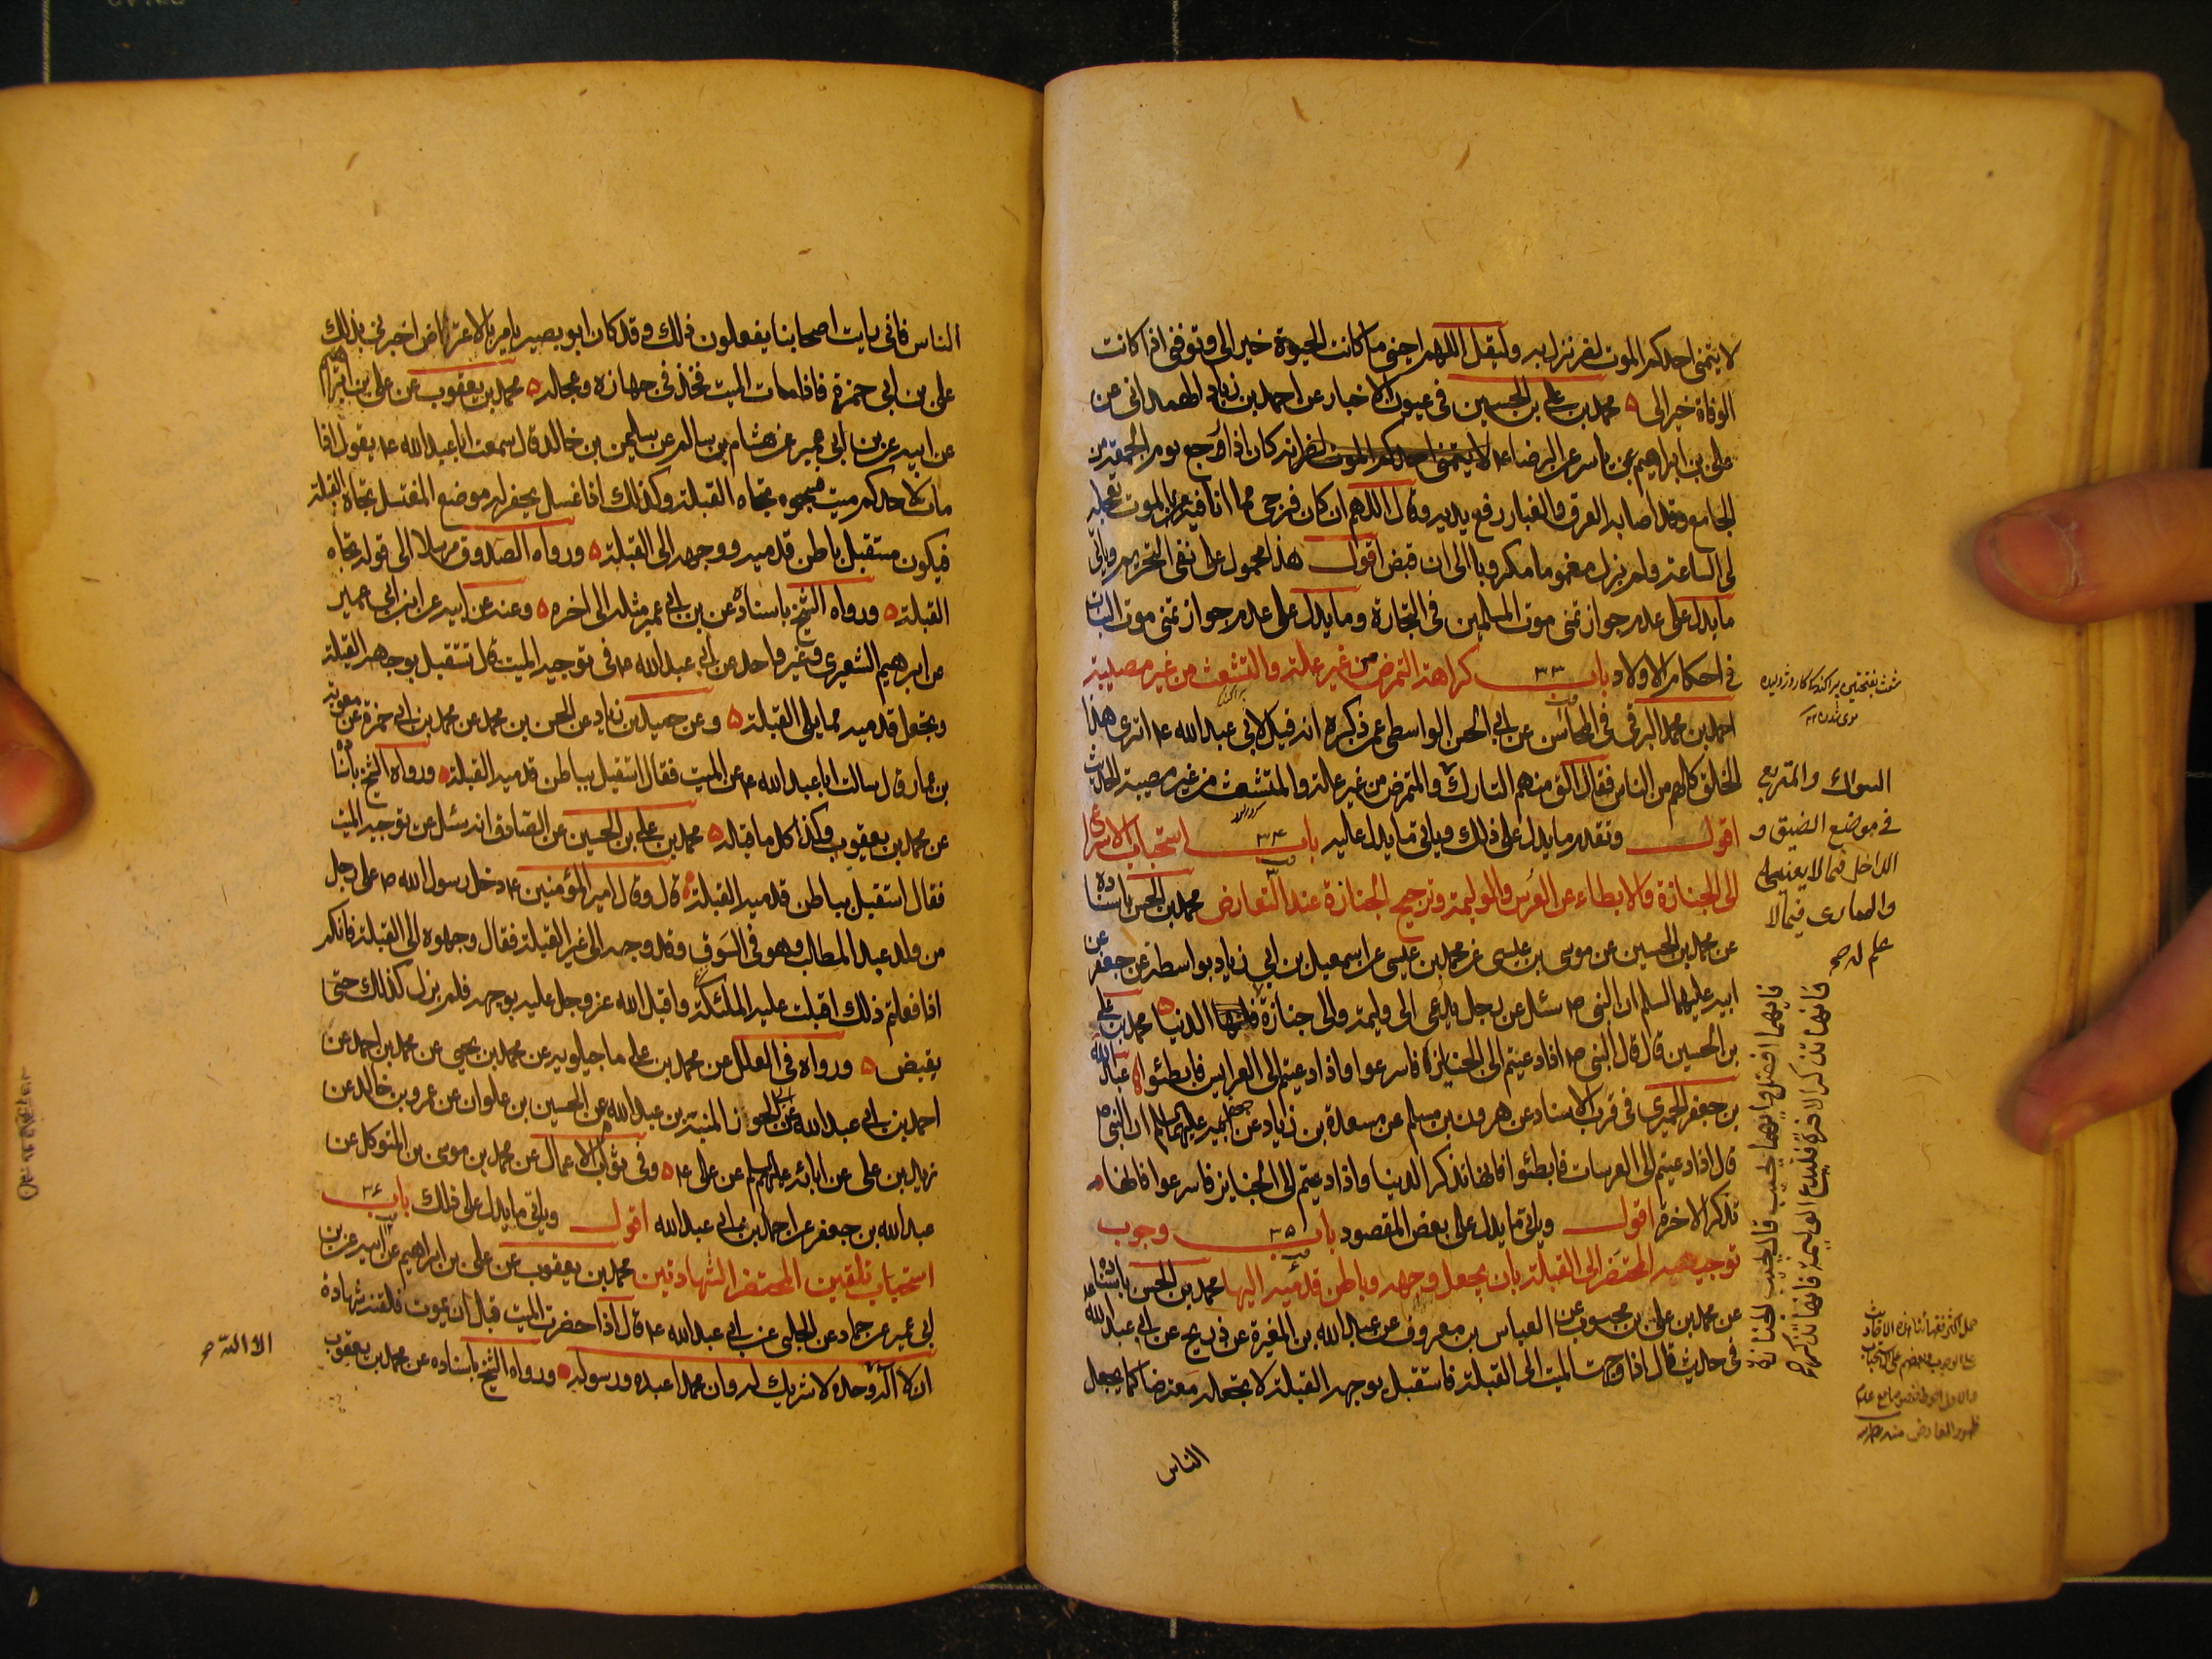 لا يتمنى احدكم الموت لضر نزل به وليقل اللهم احيني ما كانت الحيوة خير الى وتوفني اذا كانت
الوفاة خير الى محمد بن علي بن الحسين في عيون الاخبار عن احمد بن زياد الهمداني عن
علي بن ابراهيم عن ياسر عن الرضا ع انه كان اذا رجع يوم الجمعة من
الجامع وقد اصابه العرق والغبار رفع يديه وقال اللهم ان كان فرجي مما انا فيه بالموت فعجله
لى الساعة ولم يزل مغموما مكروبا الى ان قبض اقول هذا محمول على نفى التحريم وياتى
ما يدل على عدم جواز تمنى موت المسلمين في التجارة وما يدل على عدم جواز تمنى موت البنات
في احكام الاولاد باب ٣٣ كراهة التمرض من غير علة والتشعث من غير مصيبة
احمد بن محمد البرقى في المحاسن عن ابي الحسن الواسطى عمن ذكره انه قيل لابي عبد الله ع اترى هذا
الخلق كلهم من الناس فقال الق منهم التارك والمتمرض من غير علة والمتشعث من غير مصيبة الحديث
اقول وتقدم ما يدل على ذلك وياتى ما يدل عليه باب ٣٤ استحباب الاسراع
الى الجنازة والابطاء عن العرس والوليمة وترجيح الجنازة عند التعارض محمد بن الحسن باسناده
عن محمد بن الحسين عن موسى بن عيسى عن محمد بن عيسى عن اسمعيل بن ابي زياد بواسطة عن جعفر عن
ابيه عليهما السلم ان النبي ص سئل عن رجل يدعى الى وليمة والى جنازة الدنيا محمد بن علي
بن الحسين قال قال النبي ص اذا دعيتم الى الجنايز فاسرعوا واذا دعيتم الى العرايس فابطئوا عبد الله
بن جعفر الحميري في قرب الاسناد عن هرون بن مسلم عن مسعدة بن زياد عن جعفر عن ابيه عليهما السلم ان النبي ص
قال اذا دعيتم الى العرسات فابطئوا فانها تذكر الدنيا واذا دعيتم الى الجنايز فاسرعوا فانها
تذكر الاخرة اقول وياتى ما يدل على بعض المقصود باب ٣٥ وجوب
توجيه المحتضر الى القبلة بان يجعل وجهه وباطن قدميه اليها محمد بن الحسن باسناده
عن محمد بن علي بن محبوب عن العباس بن معروف عن عبد الله بن المغيرة عن ذريح عن ابي عبد الله ع
في حديث قال اذا وجهت الميت الى القبلة فاستقبل بوجهه القبلة لا تجعله معترضا كما يجعل
الناس
السواك والمتربع
في موضع الضيق و
الداخل فيما لا يعنيه
والممارى فيما لا
علم له صح
فايهما افضل وايهما يجيب قال يجيب الجنازة
فانها تذكر الاخرة وليدع الوليمة فانها تذكر صح
الناس فاني رايت اصحابنا يفعلون ذلك وقد كان ابو بصير يامر بالاعتراض اخبرني بذلك
علي بن ابي حمزة فاذا مات الميت فخذ في جهازه وعجله محمد بن يعقوب عن علي بن ابراهيم
عن ابيه عن ابن ابي عمير عن هشام بن سالم عن سليمن بن خالد قال سمعت ابا عبد الله ع يقول اذا
مات لاحدكم ميت فسجوه تجاه القبلة وكذلك اذا غسل يحفر له موضع المغتسل تجاه القبلة
فيكون مستقبل باطن قدميه ووجهه الى القبلة ورواه الصدوق مرسلا الى قوله تجاه
القبلة ورواه الشيخ باسناده عن ابن ابي عمير مثله الى اخره وعنه عن ابيه عن ابن ابي عمير
عن ابرهيم الشعيرى وغير واحد عن ابي عبد الله ع في توجيه الميت قال تستقبل بوجهه القبلة
وتجعل قدميه مما يلى القبلة وعن حميد بن زياد عن الحسن بن محمد عن محمد بن ابي حمزة عن معوية
بن عمار قال سالت ابا عبد الله ع عن الميت فقال استقبل بباطن قدميه القبلة ورواه الشيخ باسناده
عن محمد بن يعقوب وكذا كل ما قبله محمد بن علي بن الحسين عن الصادق انه سئل عن توجيه الميت
فقال استقبل بباطن قدميه القبلة قال وقال امير المؤمنين ع دخل رسول الله ص على رجل
من ولد عبد المطلب وهو في السوق وقد وجه الى غير القبلة فقال وجهوه الى القبلة فانكم
اذا فعلتم ذلك اقبلت عليه الملئكة واقبل الله عز وجل عليه بوجهه فلم يزل كذلك حتى
يقبض ورواه في العلل عن محمد بن علي ماجيلويه عن محمد بن يحيى عن محمد بن احمد عن
احمد بن ابي عبد الله عن ابي الجوزا المنبه بن عبد الله عن الحسين بن علوان عن عمرو بن خالد عن
زيد بن علي عن ابائه عليهم السلم عن علي ع وفي ثواب الاعمال عن محمد بن موسى بن المتوكل عن
عبد الله بن جعفر عن احمد بن ابي عبد الله اقول وياتى ما يدل على ذلك باب ٣٦
استحباب تلقين المحتضر الشهادتين محمد بن يعقوب عن علي بن ابراهيم عن ابيه عن بن
ابي عمير عن حماد عن الحلبي عن ابي عبد الله ع قال اذا حضرت الميت قبل ان يموت فلقنه شهادة
ان لا اله وحده لا شريك له وان محمدا عبده ورسوله ورواه الشيخ باسناده عن محمد بن يعقوب
الا الله صح